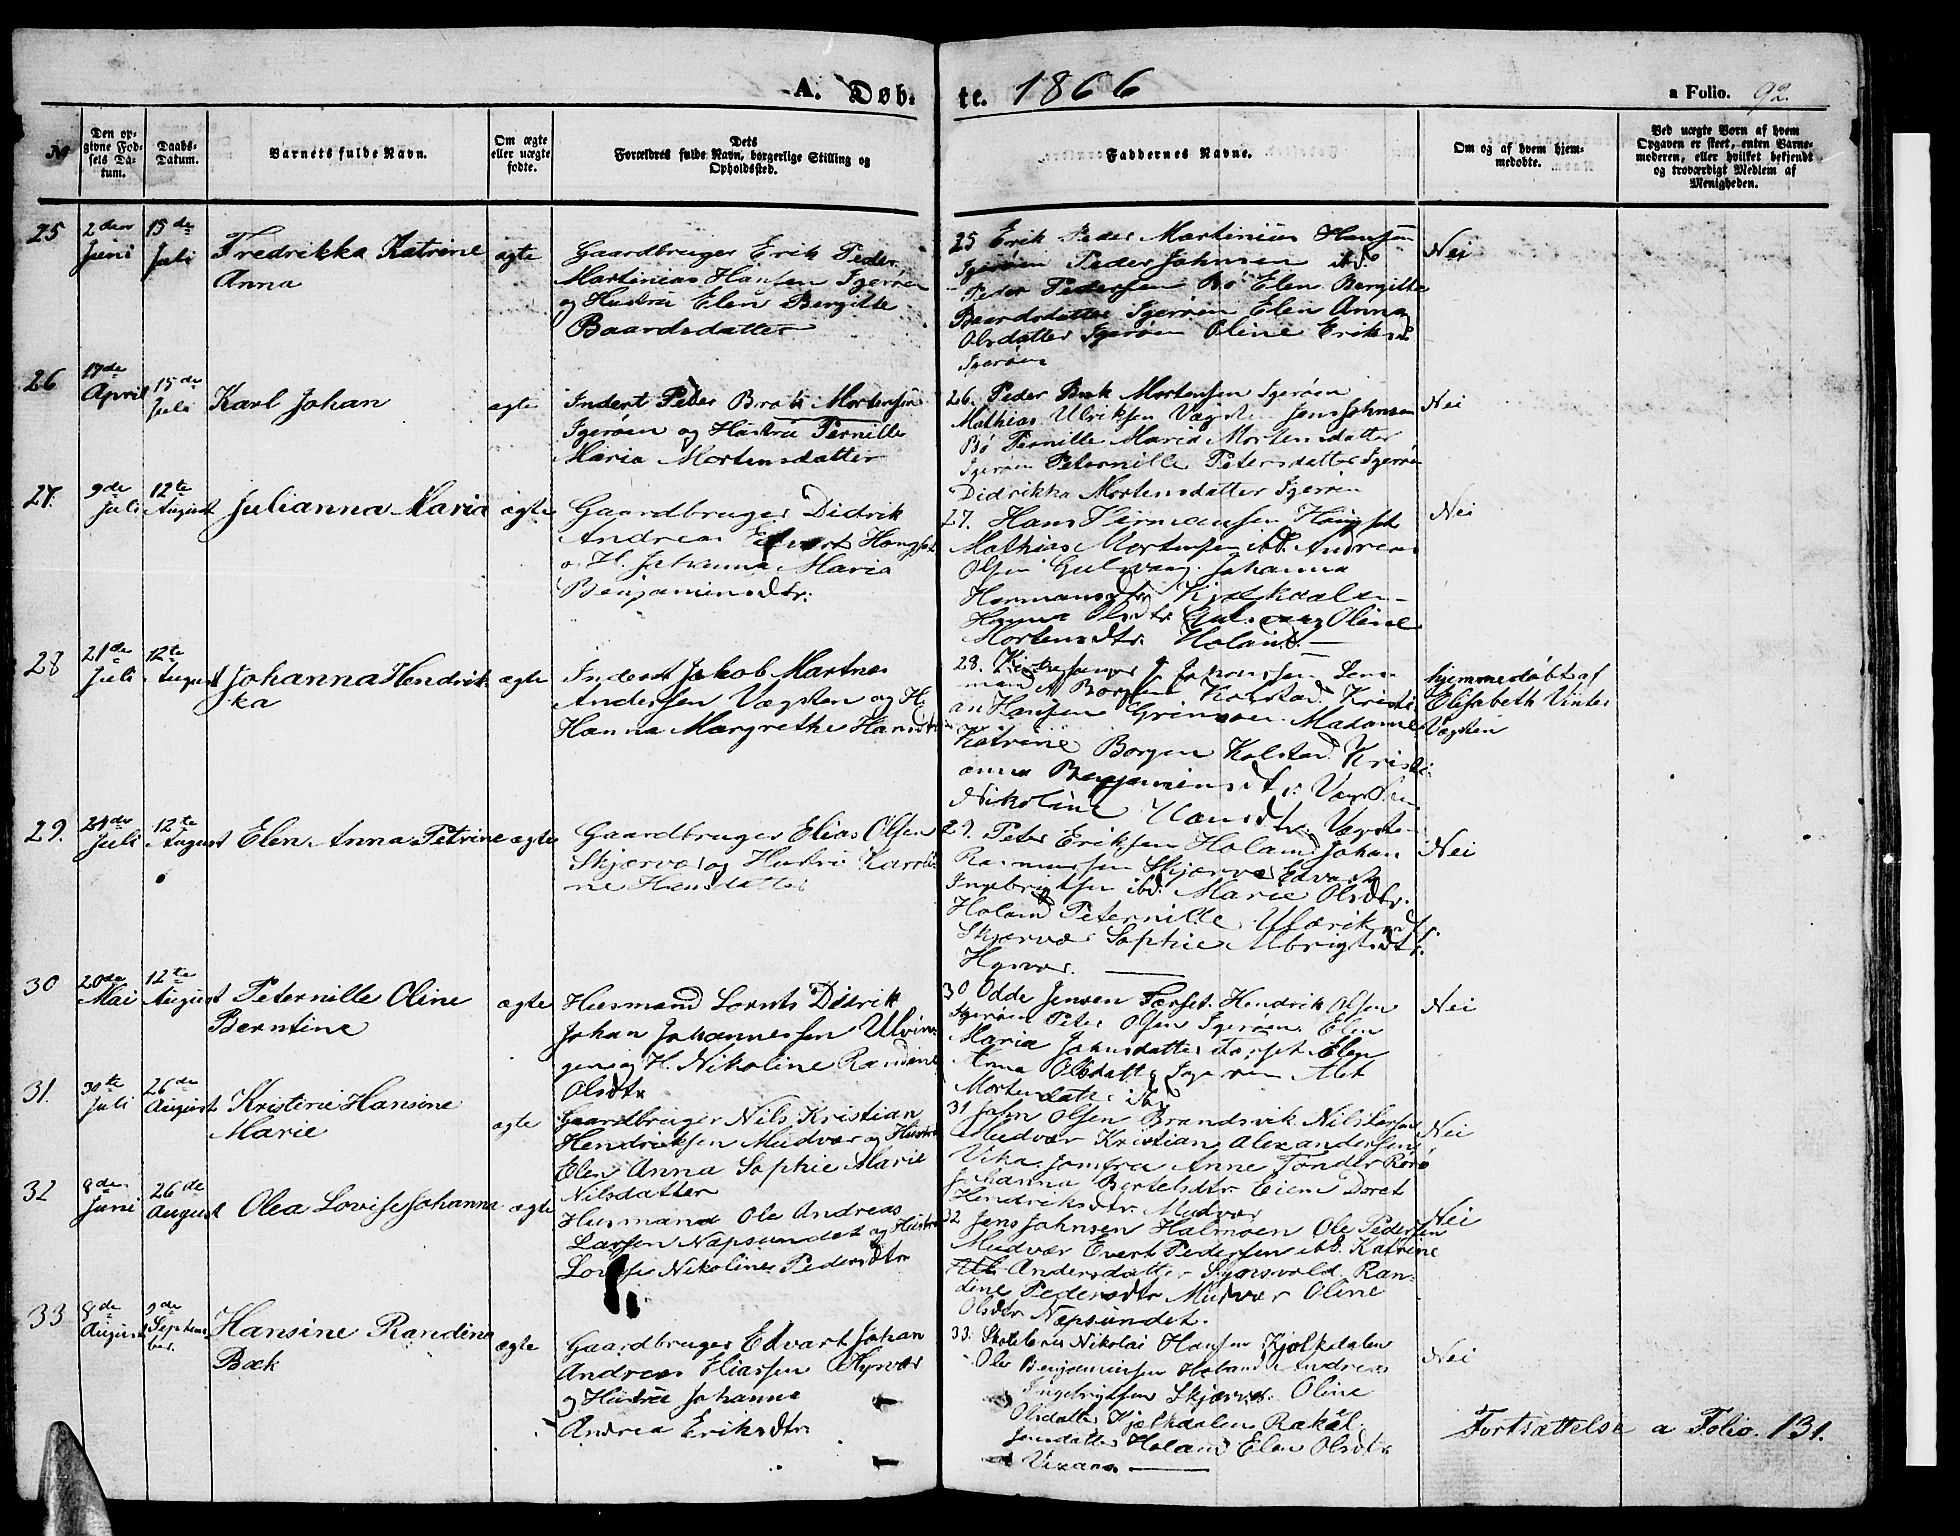 A. Døb- te. 1866
a Folio. 92.
№
Den op-
givne Fød-
sels Da-
tum.
Daabs-
Datum.
Barnets fulde Navn.
Om ægte
eller uægte
fødte.
Dets
Forældres fulde Navn, borgerlige Stilling og
Opholdssted.
Faddernes Navne.
Om og af hvem hjem-
medøbte.
Ved uægte Børn af hvem
Opgaven er skeet, enten Barne-
moderen, eller hvilket bekjendt
og troværdigt Medlem af
Menigheden.
25
2den
Juni
15de
Juli
Fredrikka Katrine
Anna
ægte
Gaardbruger Erik Peder
Martinius Hansen Igerøen
og Hustru Elen Bergitte
Baardsdatter
25 Erik Peder Martinius Hansen
Igerøen Peder Johnsen ibd.
Peder Pedersen Bø Elen Bergitte
Baardsdatter Igerøen Elen Anna
Olsdatter Igerøen Oline Eriksd
Igerøen
Nei
26
17de
April
15de
Juli
Karl Johan
ægte
Inderst Peder Mortensen
Igerøen og Hustru Pernille
Maria Mortensdatter
26. Peder Mortensen Igerøen
Mathias Ulriksen Vægsten Jens Johnsen
Bø Pernille Maria Mortensdatter
Igerøen Peternille Petersdatter Igerøen
Didrikka Mortensdatter Igerøen
Nei
27.
9de
Juli
12te
August
Julianna Maria
ægte
Gaardbruger Didrik
Andreas Edvart
o H. Johanna Maria
Benjaminsdtr.
27. Hans Hermansen
Mathias Mortensen ibd. Andreas
Olsen Gulsvaag. Johanna
Hermansdtr Kjælkdalen
Hanna Olsdtr. Gulsvaag Oline
Mortensdtr. Holand.
Nei
28
21de
Juli
12te
August
Johanna Hendrik-
ka
ægte
Inderst Jakob Martnes
Andersen Vægsten og H.
Hanna Margrethe Hansdtr
28. Kirkesanger Johansen Lens-
mand Borgen Kolstad. Kristi-
an Hansen Grimsøen. Madame
Katrine Borgen Kolstad Kristi-
anna Benjaminsdtr. Vægsten
Nikoline Hansdtr. Vægsten
hjemmedøbt af
Elisabeth Vinter
Vægsten
29.
24de
Juli
12te
August
Elen Anna Petrine
ægte
Gaardbruger Elias Olsen
Skjærvær og Hustru Karoli-
ne Hansdatter
29. Peter Eriksen Holand Johan
Rasmussen Skjærvær Edvart
Ingebrigtsen ibd. Marie Olsdtr.
Holand Peternille Ulrikadtr.
Skjærvær Sophie Albrigtsdtr.
Hysvær.
Nei
30
20de
Mai
12te
August
Peternille Oline
Berntine
ægte
Husmand Lornts Didrik
Johan Johannessen Ulvin-
gen og H. Nikoline Randine
Olsdtr
30 Odde Jensen Forset. Hendrik Olsen
Igerøen Peter Olsen Igerøen. Elen
Maria Johnsdatter Forset Elen
Anna Olsdatt Igerøen Alet
Mortensdatter ibd
Nei
31.
30te
Juli
26de
August
Kristine Hansine
Marie
ægte
Gaardbruger Nils Kristian
Hendriksen Mudvær og Hustru
Elen Anna Sophie Marie
Nilsdatter
31 John Olsen Brandsvik Nils Larsen
Mudvær Kristian Alexandersen
Vika. Jomfru Anne Tønder Rørø
Johanna Bertelsdtr. Eiem Doret
Hendriksdtr. Mudvær
Nei
32
8de
Juni
26de
August
Olea Lovise Johanna
ægte
Husmand Ole Andreas
Larsen Napsundet og Hustru
Lovise Nikoline Pedersdtr
32 Jens Johnsen Halmøen Ole Pedersen
Mudvær Evert Pedersen ibd. Katrine
Andersdatter Ran-
dine Pedersdtr Mudvær Oline
Olsdtr Napsundet.
Nei
33
8de
August
9de
Septem-
ber.
Hansine Randine
Bæk
ægte
Gaardbruger Edvart Johan
Andreas Eliassen Hysvær
og Hustru Johanna
Andrea Eriksdtr
33. Skolelærer Nikolai Hansen Kjælkdalen
Ole Benjaminsen Holand Andreas
Ingebrigtsen Skjærvær Oline
Olsdatter Kjælkdalen Rakel
Jensdatter Holand Elen Olsdtr
Nei
Fortsættelse a Folio. 131.